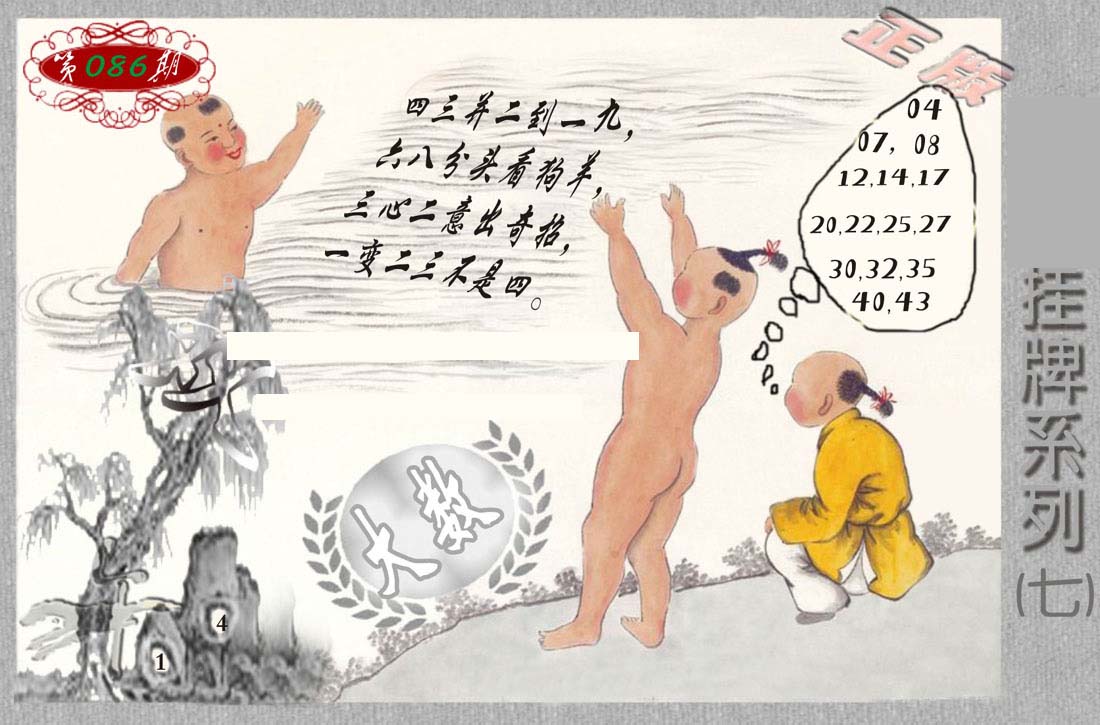 第086期
正版
四三并二到一九，
六八分头看狗羊，
三心二意出奇招，
一变二三不是四。
04
07，08
12,14,17
20,22,25,27
30,32,35
40,43
挂牌系列(七)
大数
4
1